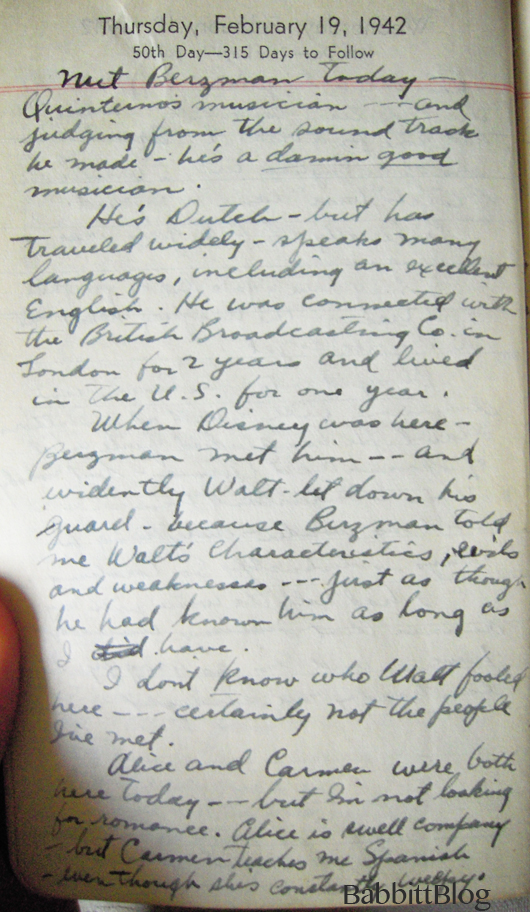 Thursday, February 19, 1942
50th Day—315 Days to Follow
Met Berzman Today -
Quinterno's musician --- and
judging from the sound track
he made - he's a damn good
musician.
He's Dutch - but has
traveled widely - speaks many
languages, including an excellent
English. He was connected with
the British Broadcasting Co. in
London for 2 years and lived
in the U.S. for one year.
When Disney was here -
Berzman met him -- and
evidently Walt let down his
guard - because Berzman told
me Walt's Characteristics, evils
and weaknesses --- just as though
he had known him as long as
I did have.
I don't know who Walt fooled
here --- certainly not the people
I've met.
Alice and Carmen were both
here today -- but I'm not looking
for romance. Alice is swell company
- but Carmen teaches me Spanish
- even though she's constantly
BabbittBlog